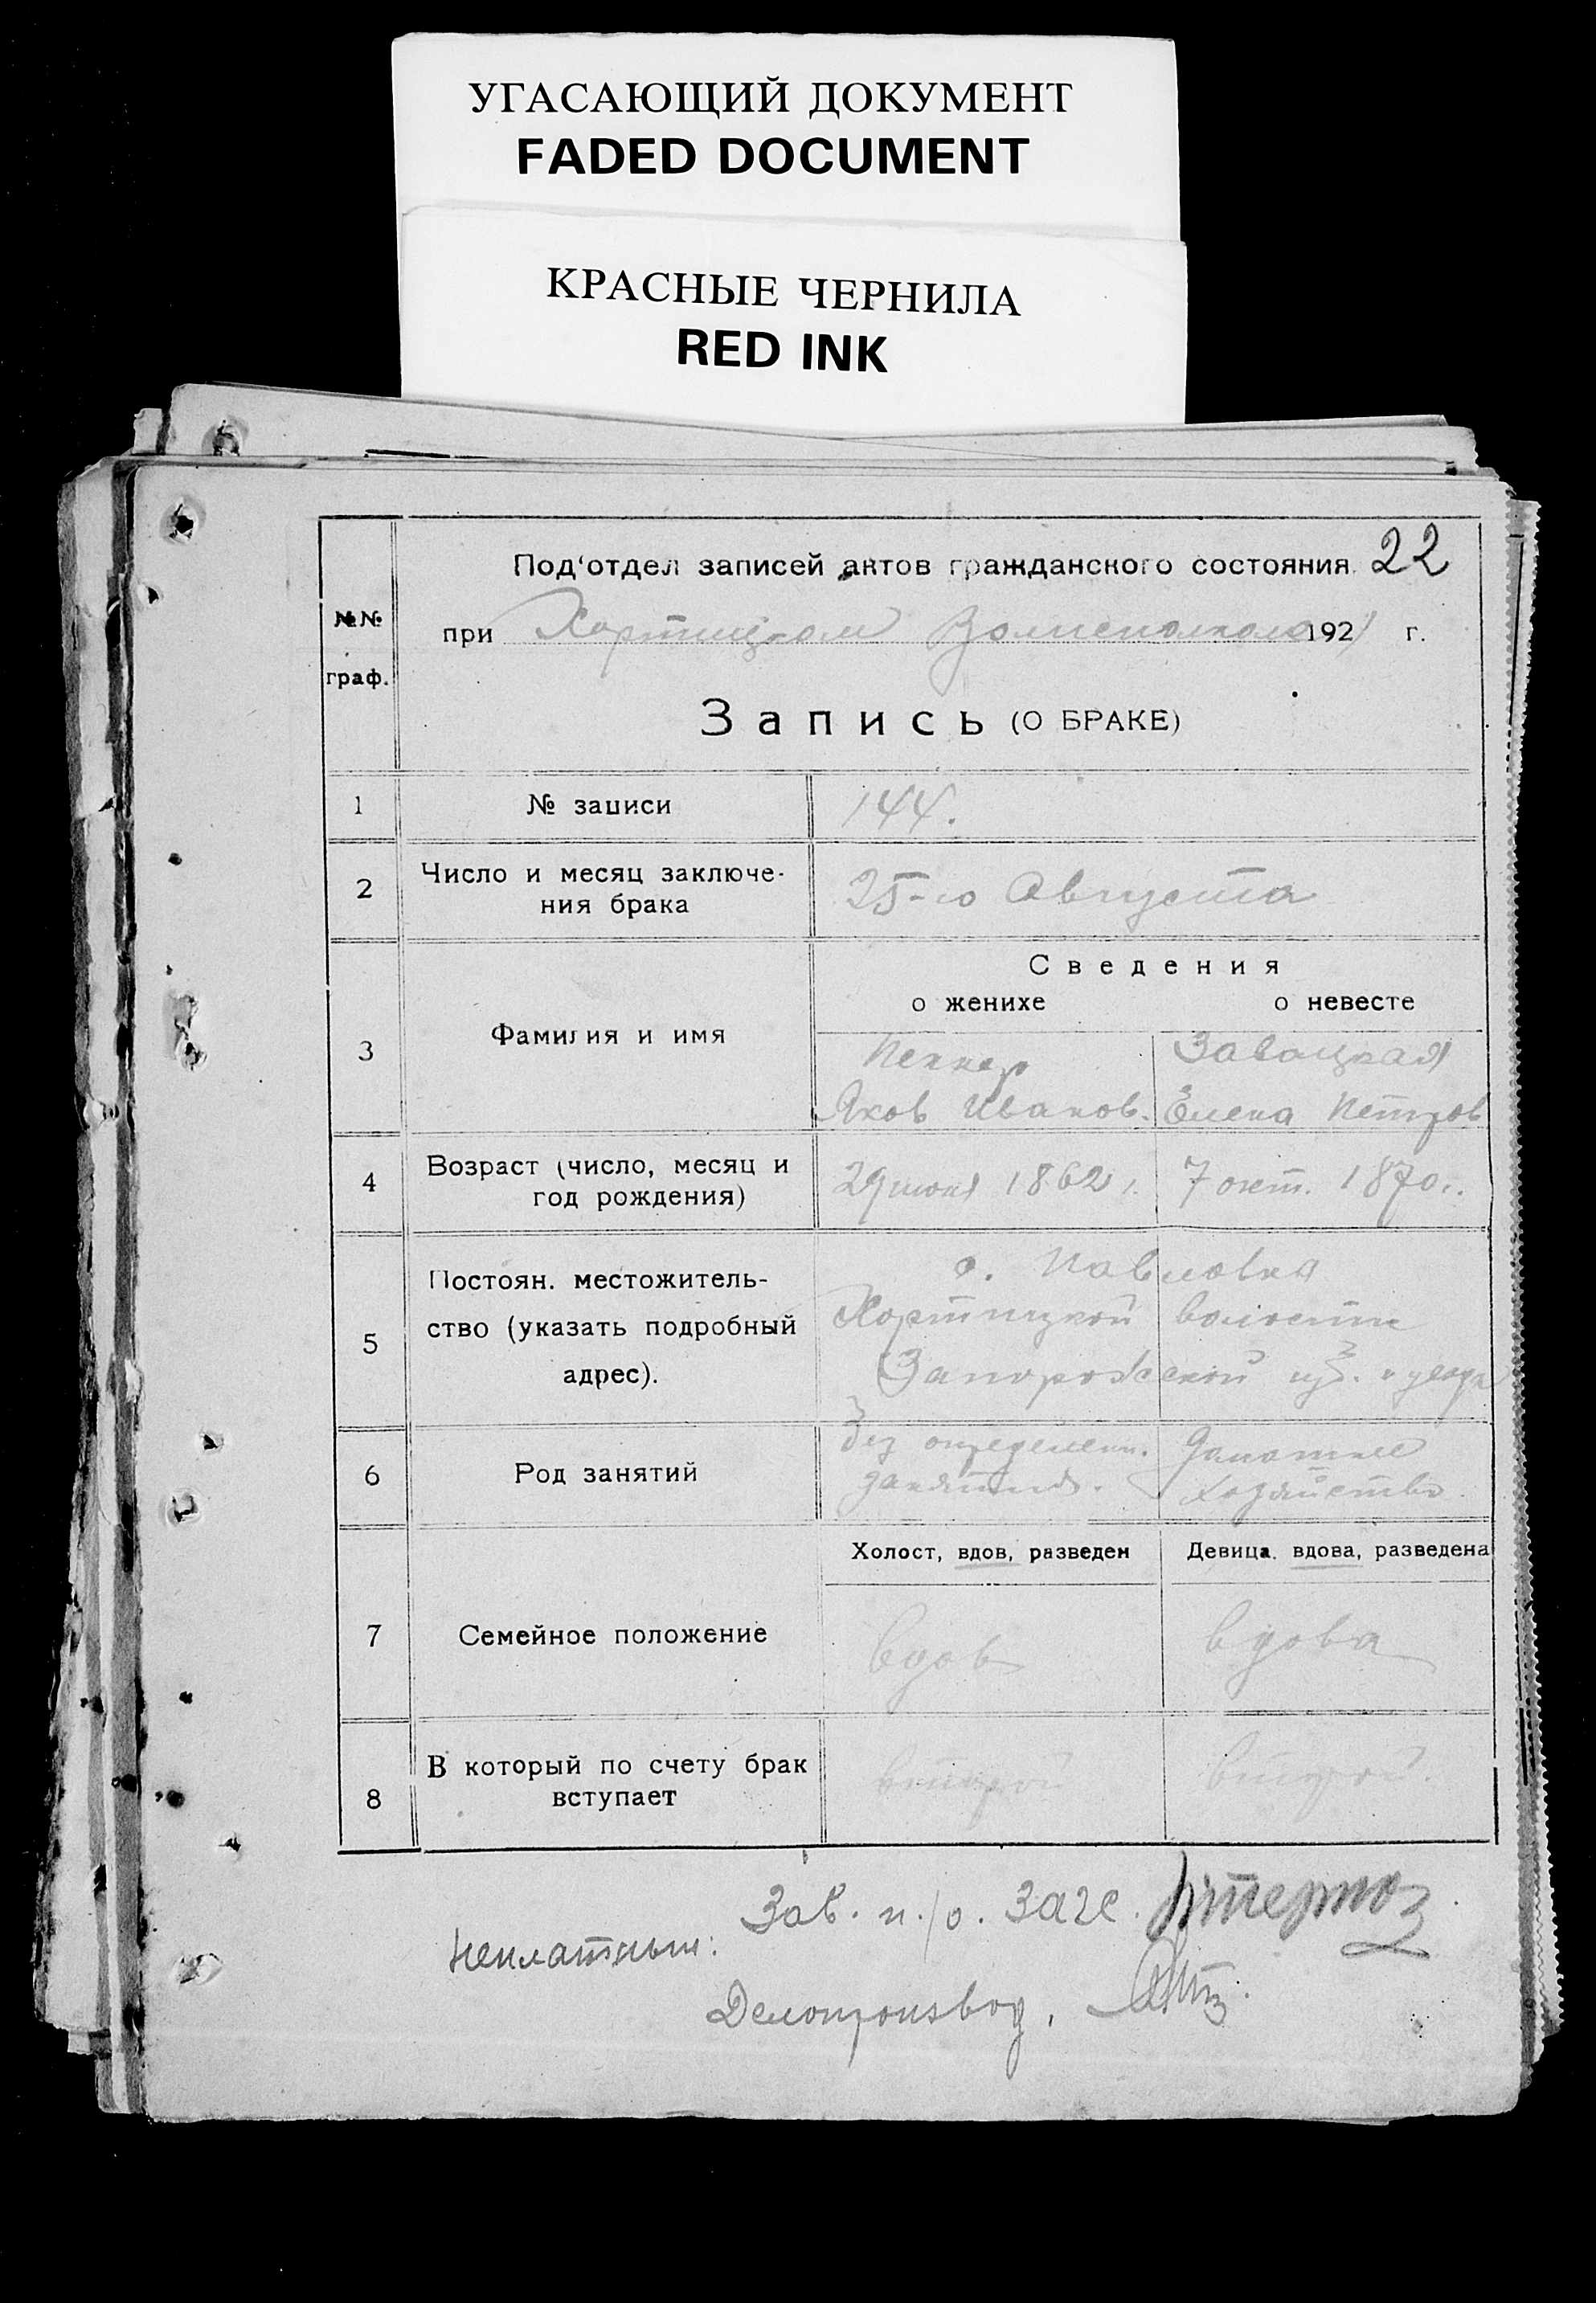 УГАСАЮЩИЙ ДОКУМЕНТ
FADED DOCUMENT
КРАСНЫЕ ЧЕРНИЛА
RED INK
22
№№ граф.
Под'отдел записей актов гражданского состояния
при Хортицком Волисполкоме 1921 г.
Запись (О БРАКЕ)
1 № записи 144.
2 Число и месяц заключе-
ния брака 25-го Августа
Сведения
о женихе о невесте
3 Фамилия и имя
Пеннер Завацкая
Яков Иванов. Елена Петров
4 Возраст (число, месяц и
год рождения)
29 июня 1862 г. 7 окт. 1870 г.
5 Постоян. местожитель-
ство (указать подробный
адрес).
с. Павловка
Хортицкой волости
Запорожской губ. и уезда
6 Род занятий
Без определенн. Домашнее
занятия. хозяйство.
Холост, вдов, разведен Девица, вдова, разведена
7 Семейное положение
вдов вдова
8 В который по счету брак
вступает
второй второй.
Зав. п./о. ЗАГС.
Делопроизвод.